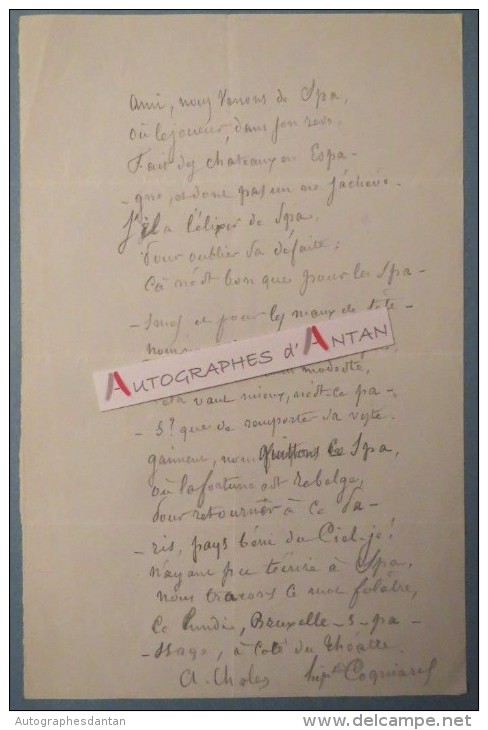 Ami, nous venons de Spa,
où le joueur, dans son rêve,
Fait des chateaux en Espa-
-gne, et dont pas un ne s'achève.
S'il a l'élixir de Spa,
Pour oublier sa défaite;
Ça n'est bon que pour les Spa-
-smes et pour les maux de tête.
AUTOGRAPHES d'ANTAN
modestie,
vaut mieux, n'est-ce pa-
-s? que de remporter sa veste.
gaiment, nous quittons ce Spa,
où la fortune est
Pour retourner à ce Pa-
-ris, pays béni du Ciel-je!
n'ayant pu t'écrire à Spa,
nous traçons ce mot folâtre,
Ce lundi, Bruxelle-s-pa-
-ssage, à côté du théâtre.
A. Choler Hipte Cogniard
Autographesdantan
www.delcampe.net